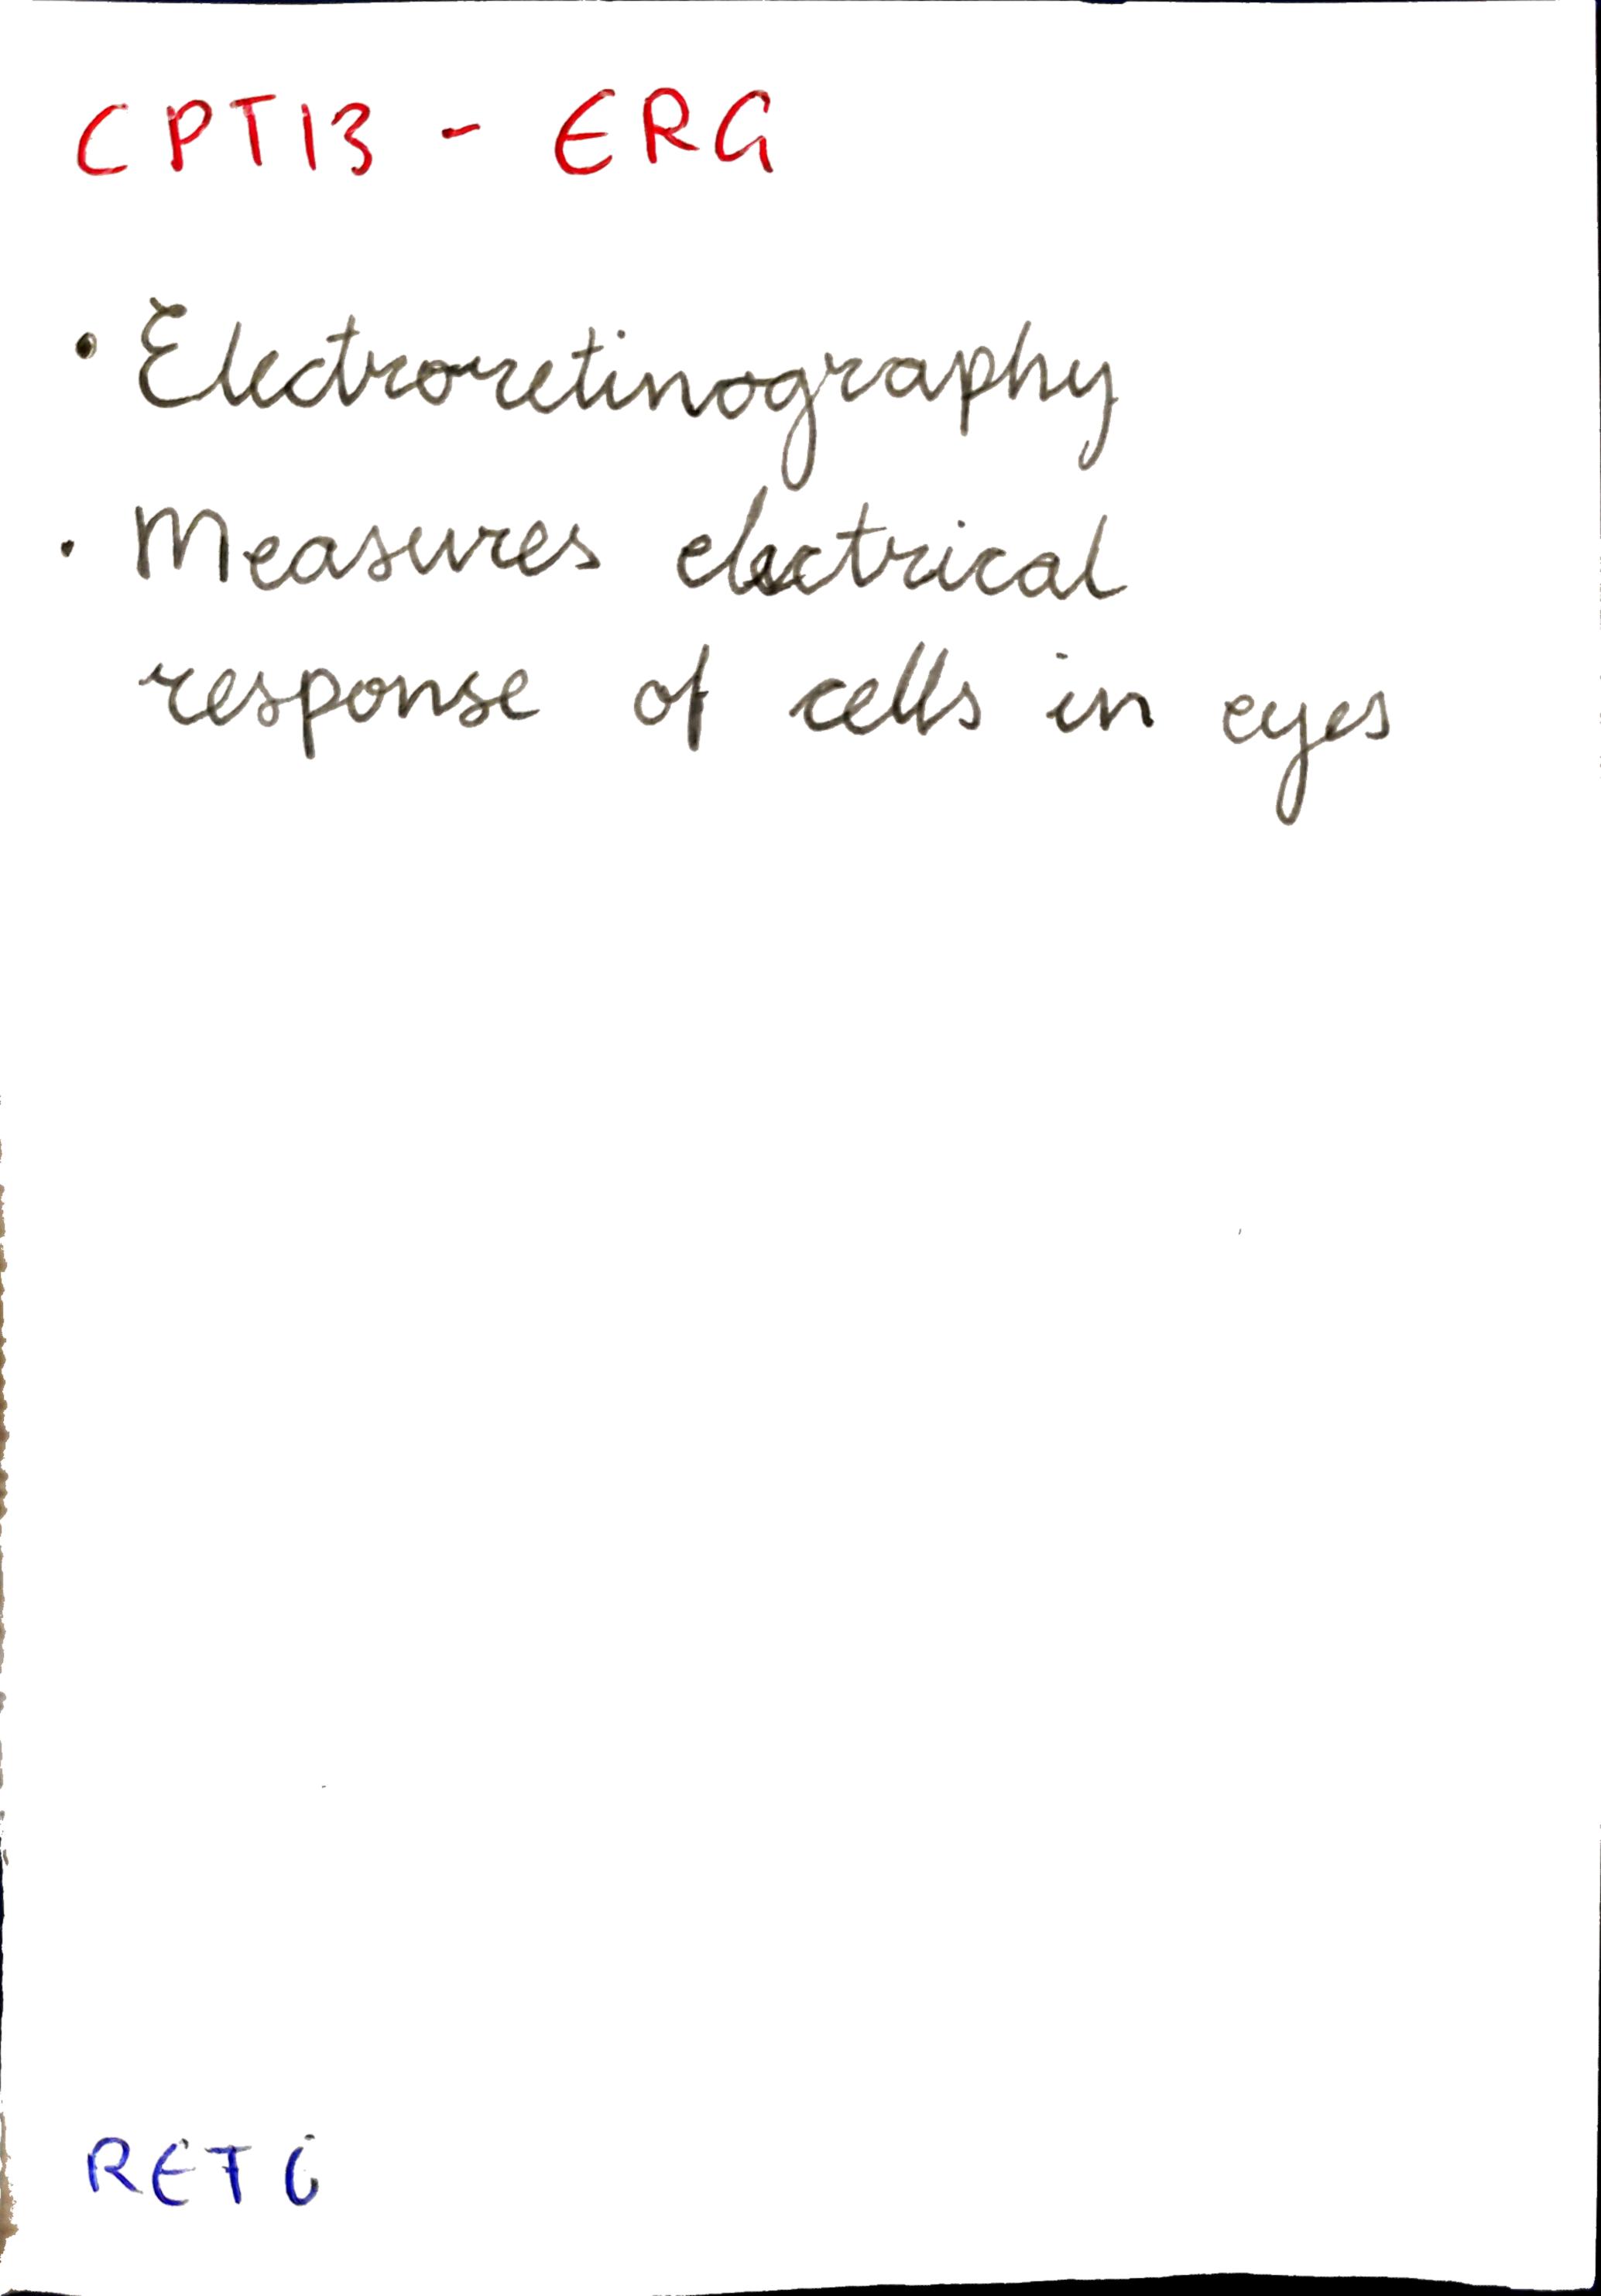 CPT13 - ERG
• Electroretinography
• Measures electrical
response of cells in eyes
RET6